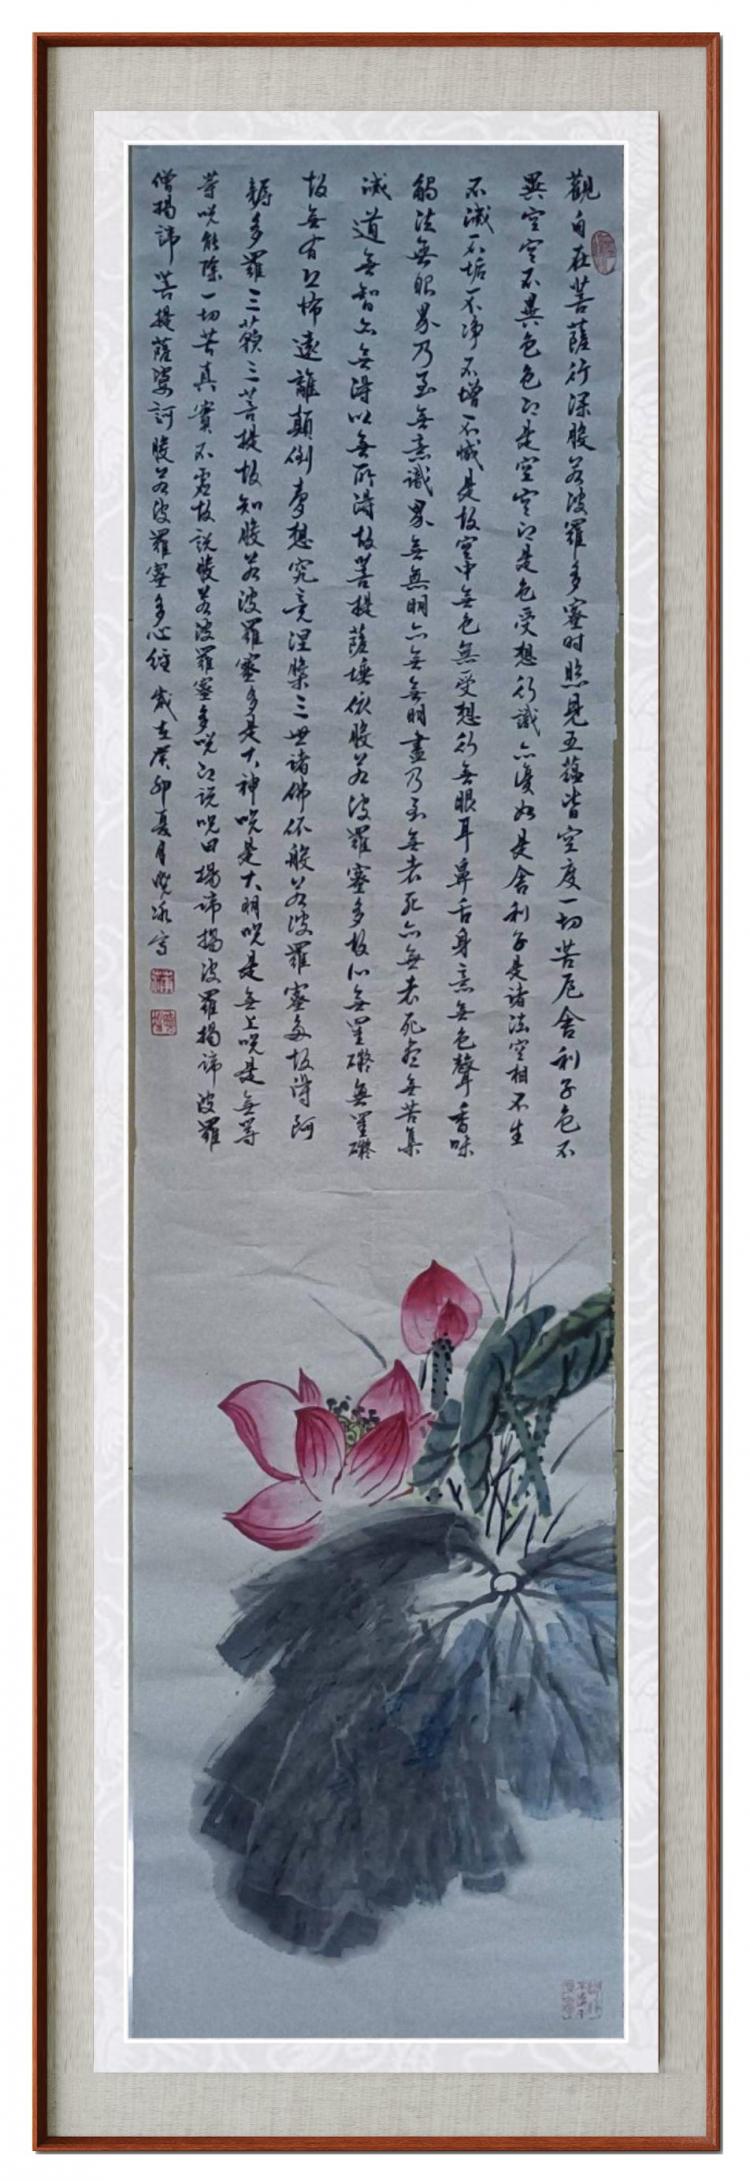 觀自在菩薩行深般若波羅多蜜时照見五蕴皆空度一切苦厄舍利子色不
異空空不異色色即是空空即是色受想行識亦復如是舍利子是诸法空相不生
不滅不垢不净不增不减是故空中無色無受想行無眼耳鼻舌身意無色聲香味
觸法無眼界乃至無意識界無無明亦無無明盡乃至無老死亦無老死盡無苦集
滅道無智亦無得以無所得故菩提薩埵依般若波羅蜜多故心無罣礙無罣礙
故無有恐怖遠離顛倒夢想究竟涅槃三世诸佛依般若波羅蜜多故得阿
耨多羅三藐三菩提故知般若波羅蜜多是大神咒是大明咒是無上咒是無等
等咒能除一切苦真實不虚故説般若波羅蜜多咒即説咒曰揭谛揭波羅揭谛波羅
僧揭谛菩提薩婆訶般若波羅蜜多心經 歲在癸卯夏月曉冰写